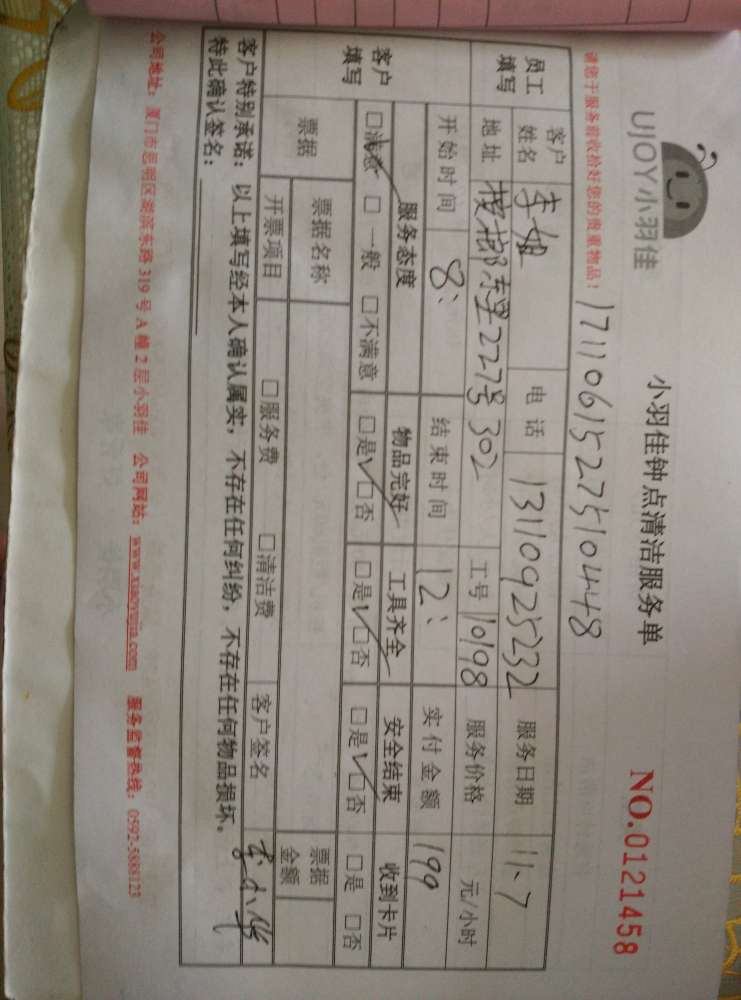 UJOY小羽佳
小羽佳钟点清洁服务单
NO.0121458
请您于服务前收拾好您的贵重物品!
1711061527510448
员工填写
客户姓名 李姐 电话 13110925232 服务日期 11、7
地址 东里227号302 工号 10198 服务价格 元/小时
开始时间 8: 结束时间 12: 实付金额 199
客户填写
服务态度 物品完好 工具齐全 安全结束 收到卡片
□满意 □一般 □不满意 □是√□否 □是√□否 □是√□否 □是 □否
票据 票据名称 票据金额
开票项目 □服务费 □清洁费 客户签名
客户特别承诺:以上填写经本人确认属实,不存在任何纠纷,不存在任何物品损坏。
特此确认签名:
公司地址:厦门市思明区湖滨东路319号A幢2层小羽佳 公司网站:www.xiaoyujia.com 服务监督热线:0592-5888123